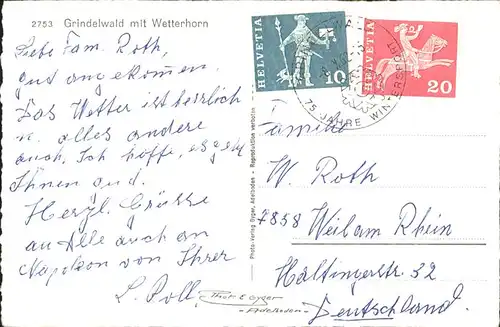 2753 Grindelwald mit Wetterhorn
Liebe Fam. Roth,
gut angekommen.
Das Wetter ist herrlich
u. alles andere
auch. Ich hoffe, es geht
Ihnen gut.
Herzl. Grüsse
an Alle auch an
Napoleon von Ihrer
L. Poll
HELVETIA
10
HELVETIA
20
75 JAHRE WINTERSPORT
Familie
W. Roth
7858 Weil am Rhein
Haltingerstr. 32
Deutschland.
Photo-Verlag Gyger, Adelboden - Reproduktion verboten
Phot. E. Gyger
Adelboden